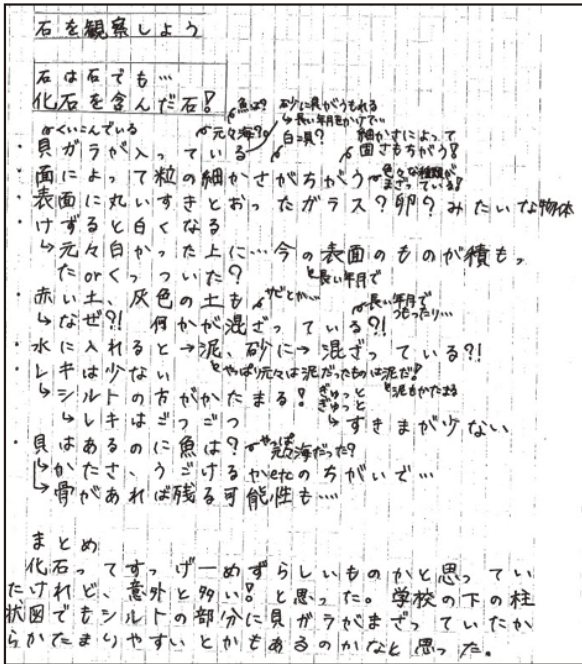 石を観察しよう
石は石でも…
化石を含んだ石!
魚は?
砂に貝がうもれる
↳長い年月をかけて…
くいこんでいる
元々海?
白っ貝?
細かさによって
固さもちがう!
・貝ガラが入っている
・面によって粒の細かさがちがう
色々な種類が
まざっている!
・表面に丸いすきとおったガラス?卵?みたいな物体
・けずると白くなる
↳元々白かった上に…今の表面のものが積もっ
たorくっついた?
↳長い年月で
・赤い土、灰色の土も
サビとか…
長い年月で
つもったり…
↳なぜ?!何かが混ざっている?!
・水に入れると→泥、砂に→混ざっている?!
・レキは少ない
↳やっぱり元々は泥だったものは泥だ!
↳シルトの方がかたまる!
ぎゅっと
ぎゅっと
↳泥もかたまる
↳レキはごつごつ
↳すきまが少ない
・貝はあるのに魚は?
やっぱ
元々海だった?
↳かたさ、うごけるかetcのちがいで…
↳骨があれば残る可能性も…
まとめ
化石ってすっげーめずらしいものかと思ってい
たけれど、意外と多い!と思った。学校の下の柱
状図でもシルトの部分に貝ガラがまざっていたか
らかたまりやすいとかもあるのかなと思った。